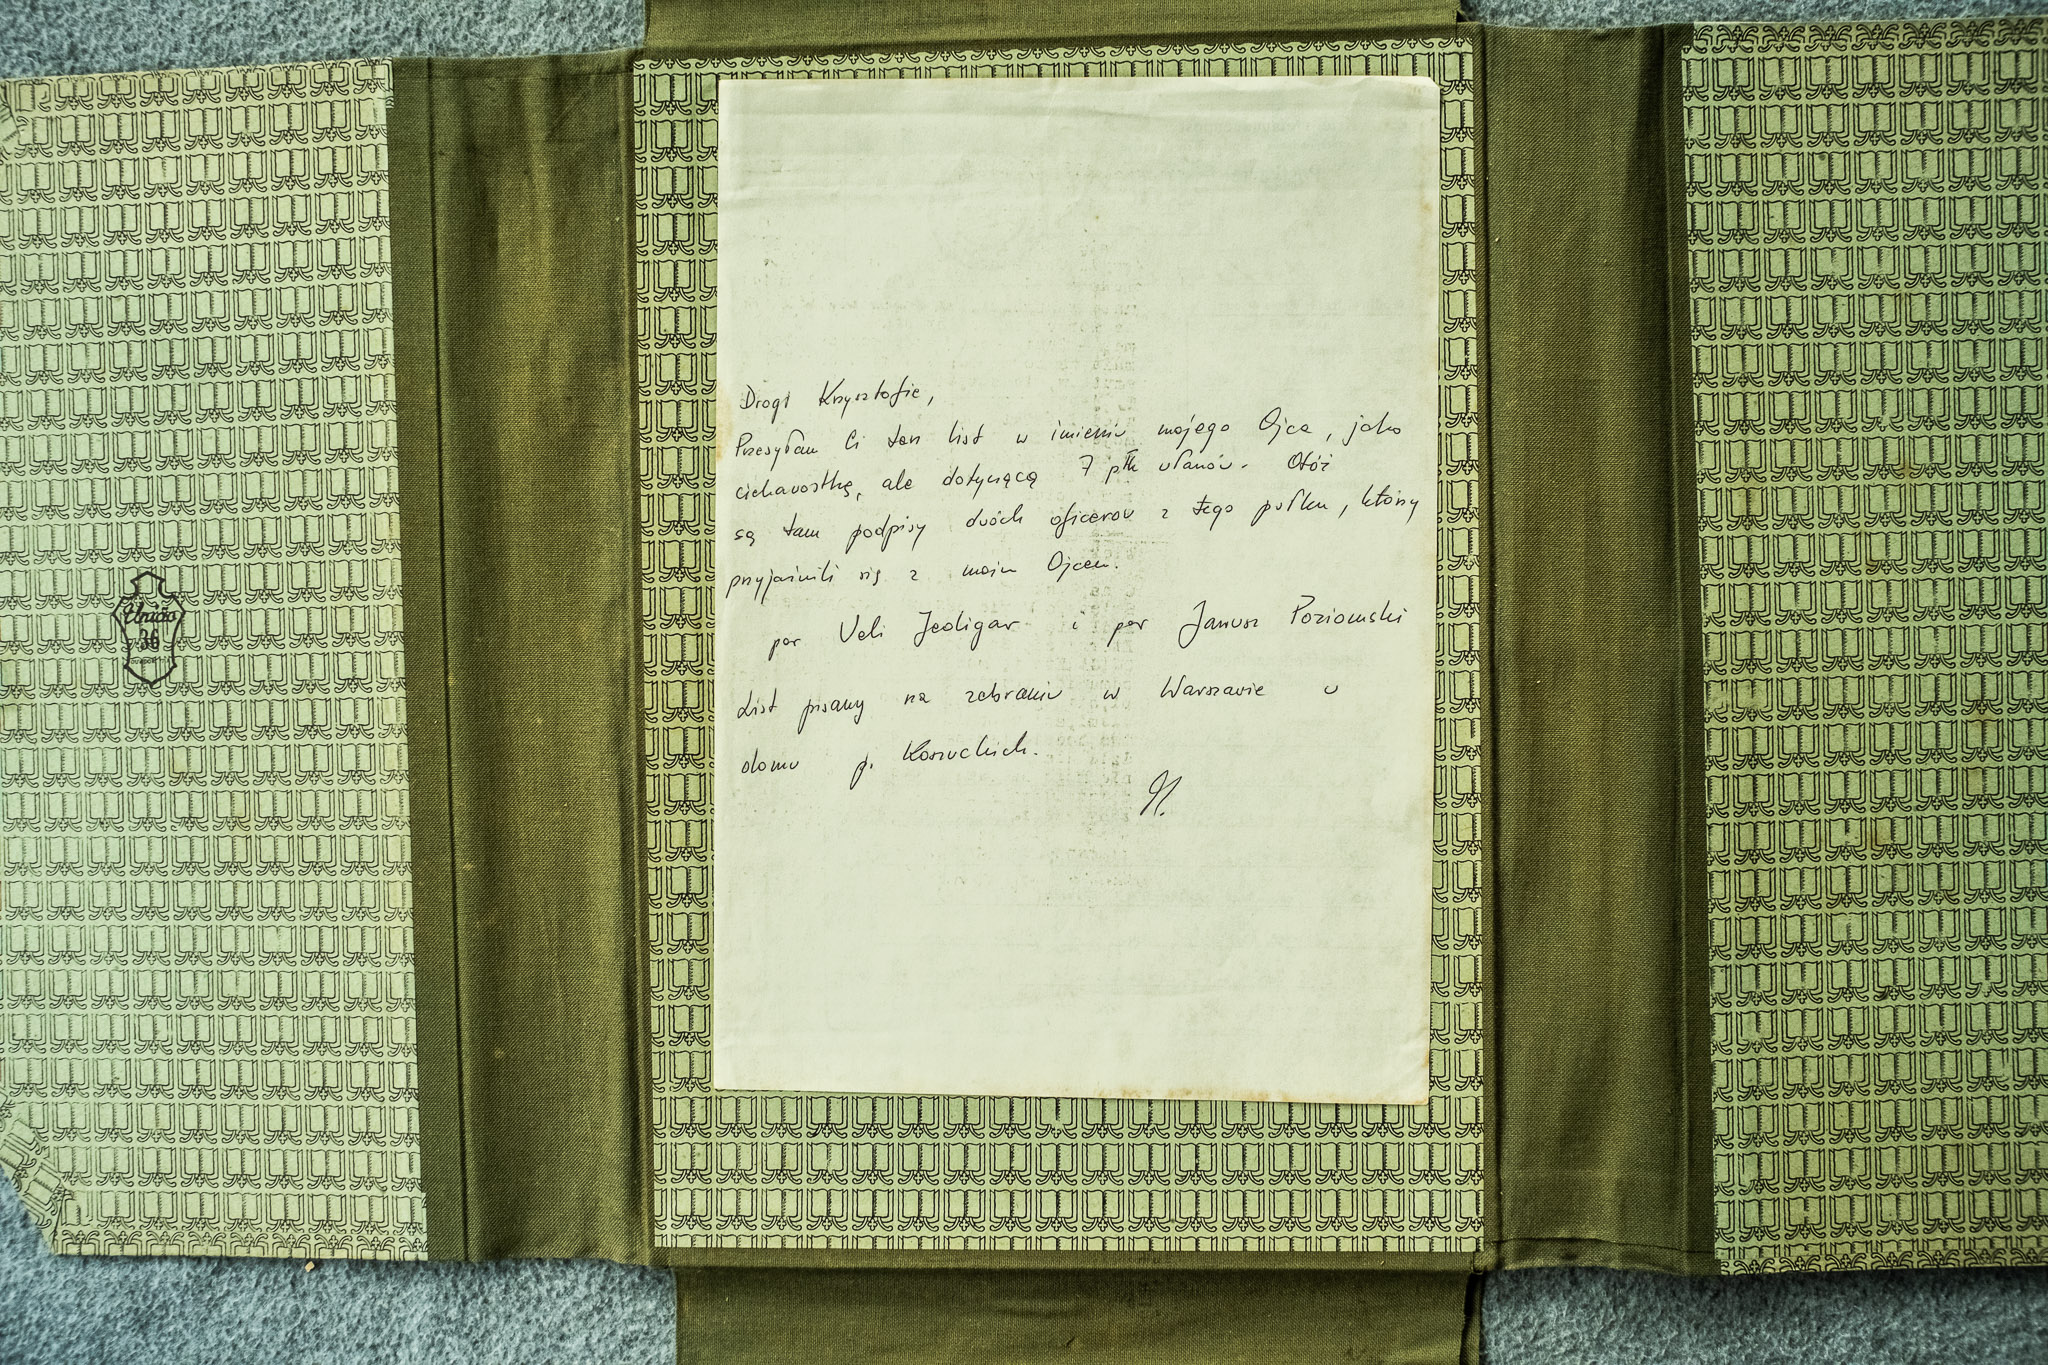 Drogi Krzysztofie,
Przesyłam Ci ten list w imieniu mojego Ojca, jako
ciekawostkę, ale dotyczącą 7 płk ułanów. Otóż
są tam podpisy dwóch oficerów z tego pułku, którzy
przyjaźnili się z moim Ojcem.
por Veli Jedigar i por Janusz Poziomski
List pisany na zebraniu w Warszawie w
domu p. Kossuckich.
Unido
36